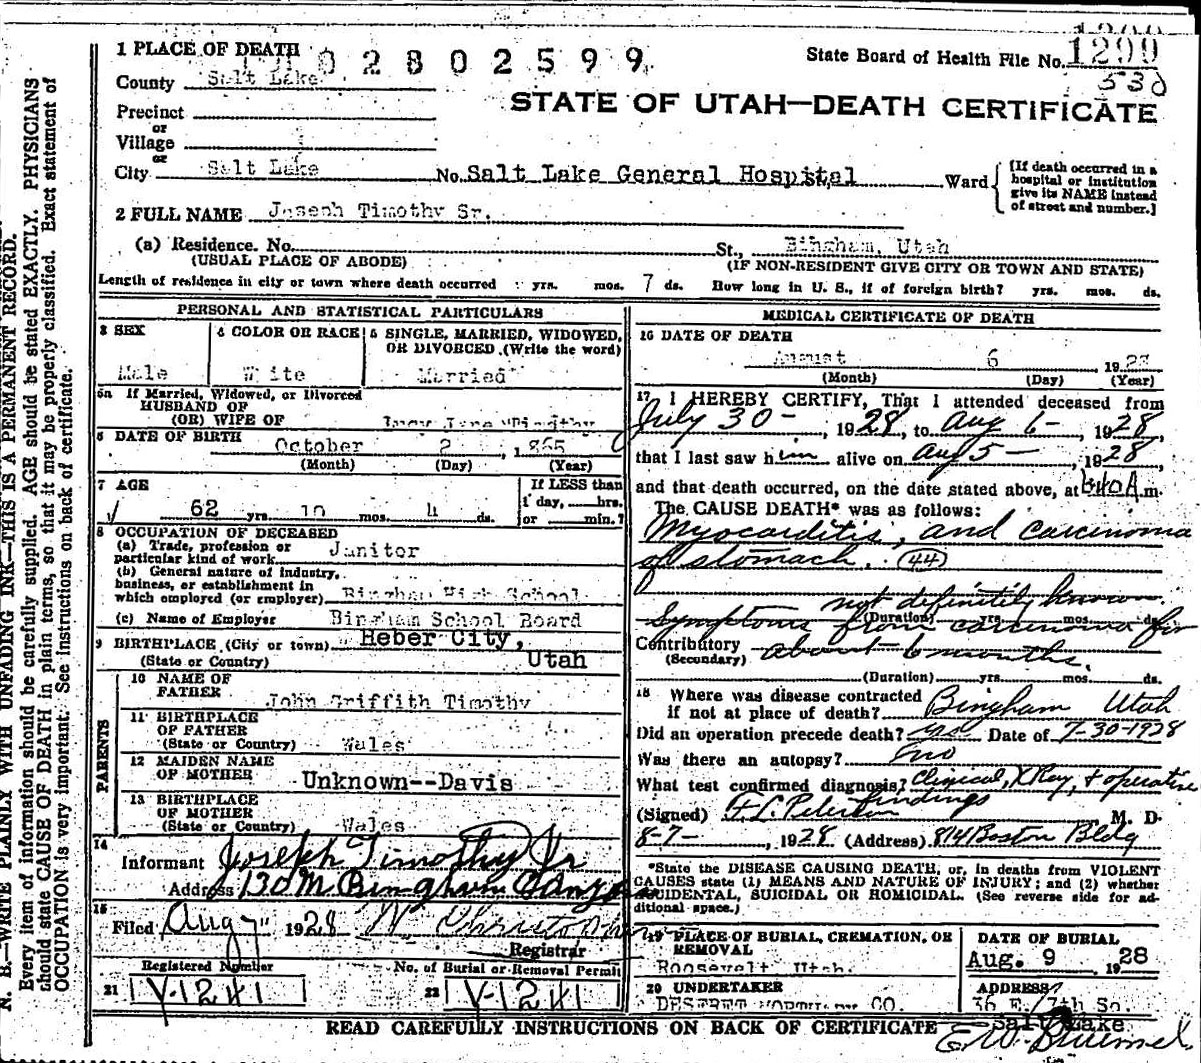 1299
530
State Board of Health File No.
1 PLACE OF DEATH
02802599
County Salt Lake
STATE OF UTAH—DEATH CERTIFICATE
Precinct
or
Village
or
City Salt Lake No. Salt Lake General Hospital Ward
[If death occurred in a
hospital or institution
give its NAME instead
of street and number.]
2 FULL NAME Joseph Timothy Sr.
(a) Residence. No. St., Bingham, Utah
(USUAL PLACE OF ABODE) (IF NON-RESIDENT GIVE CITY OR TOWN AND STATE)
Length of residence in city or town where death occurred yrs. mos. 7 ds. How long in U. S., if of foreign birth? yrs. mos. ds.
PERSONAL AND STATISTICAL PARTICULARS
3 SEX 4 COLOR OR RACE 5 SINGLE, MARRIED, WIDOWED,
OR DIVORCED (Write the word)
Male White Married
6a If Married, Widowed, or Divorced
HUSBAND OF
(OR) WIFE OF Jane Timothy
6 DATE OF BIRTH October 2 1865
(Month) (Day) (Year)
7 AGE If LESS than
1 day, hrs.
62 yrs. 10 mos. 4 ds. or min.?
8 OCCUPATION OF DECEASED
(a) Trade, profession or
particular kind of work Janitor
(b) General nature of industry,
business, or establishment in
which employed (or employer) Bingham High School
(c) Name of Employer Bingham School Board
9 BIRTHPLACE (City or town) Heber City,
(State or Country) Utah
PARENTS
10 NAME OF
FATHER John Griffith Timothy
11 BIRTHPLACE
OF FATHER
(State or Country) Wales
12 MAIDEN NAME
OF MOTHER Unknown--Davis
13 BIRTHPLACE
OF MOTHER
(State or Country) Wales
14
Informant Joseph Timothy Jr
Address 130 M Bingham Canyon
15
Filed Aug 7" 1928
Registrar
Registered Number No. of Burial or Removal Permit
21 Y-1241 22 Y-1241
MEDICAL CERTIFICATE OF DEATH
16 DATE OF DEATH
August 6 1928
(Month) (Day) (Year)
17 I HEREBY CERTIFY, That I attended deceased from
July 30 - , 1928, to Aug 6 - , 1928,
that I last saw him alive on Aug 5 - , 1928,
and that death occurred, on the date stated above, at 6:40 A.m.
The CAUSE DEATH* was as follows:
Myocarditis, and carcinoma
of stomach. (44)
not definitely known
(Duration) yrs. mos. ds.
Symptoms from carcinoma for
Contributory about 6 months.
(Secondary)
(Duration) yrs. mos. ds.
18 Where was disease contracted
if not at place of death? Bingham Utah
Did an operation precede death? yes Date of 7-30-1928
Was there an autopsy? no
What test confirmed diagnosis? Clinical, XRay, + operative
findings
(Signed) F L Peterson M. D.
8-7- , 1928 (Address) 814 Boston Bldg
*State the DISEASE CAUSING DEATH, or, in deaths from VIOLENT
CAUSES state (1) MEANS AND NATURE OF INJURY; and (2) whether
ACCIDENTAL, SUICIDAL OR HOMICIDAL. (See reverse side for ad-
ditional space.)
19 PLACE OF BURIAL, CREMATION, OR
REMOVAL
Roosevelt, Utah
DATE OF BURIAL
Aug. 9 1928
20 UNDERTAKER
DESERET MORTUARY CO.
ADDRESS
36 E. 7th So.
Salt Lake
READ CAREFULLY INSTRUCTIONS ON BACK OF CERTIFICATE
N. B.—WRITE PLAINLY WITH UNFADING INK—THIS IS A PERMANENT RECORD.
Every item of information should be carefully supplied. AGE should be stated EXACTLY. PHYSICIANS
should state CAUSE OF DEATH in plain terms, so that it may be properly classified. Exact statement of
OCCUPATION is very important. See instructions on back of certificate.